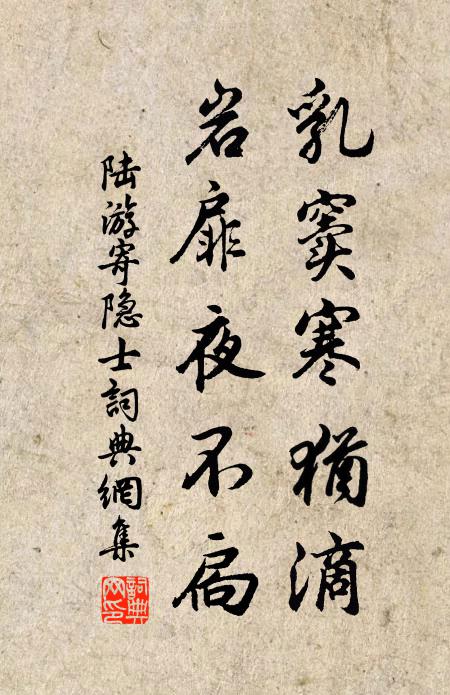 乳窦寒犹滴
岩扉夜不扃
陆游寄隐士詞典網集
詞典网印